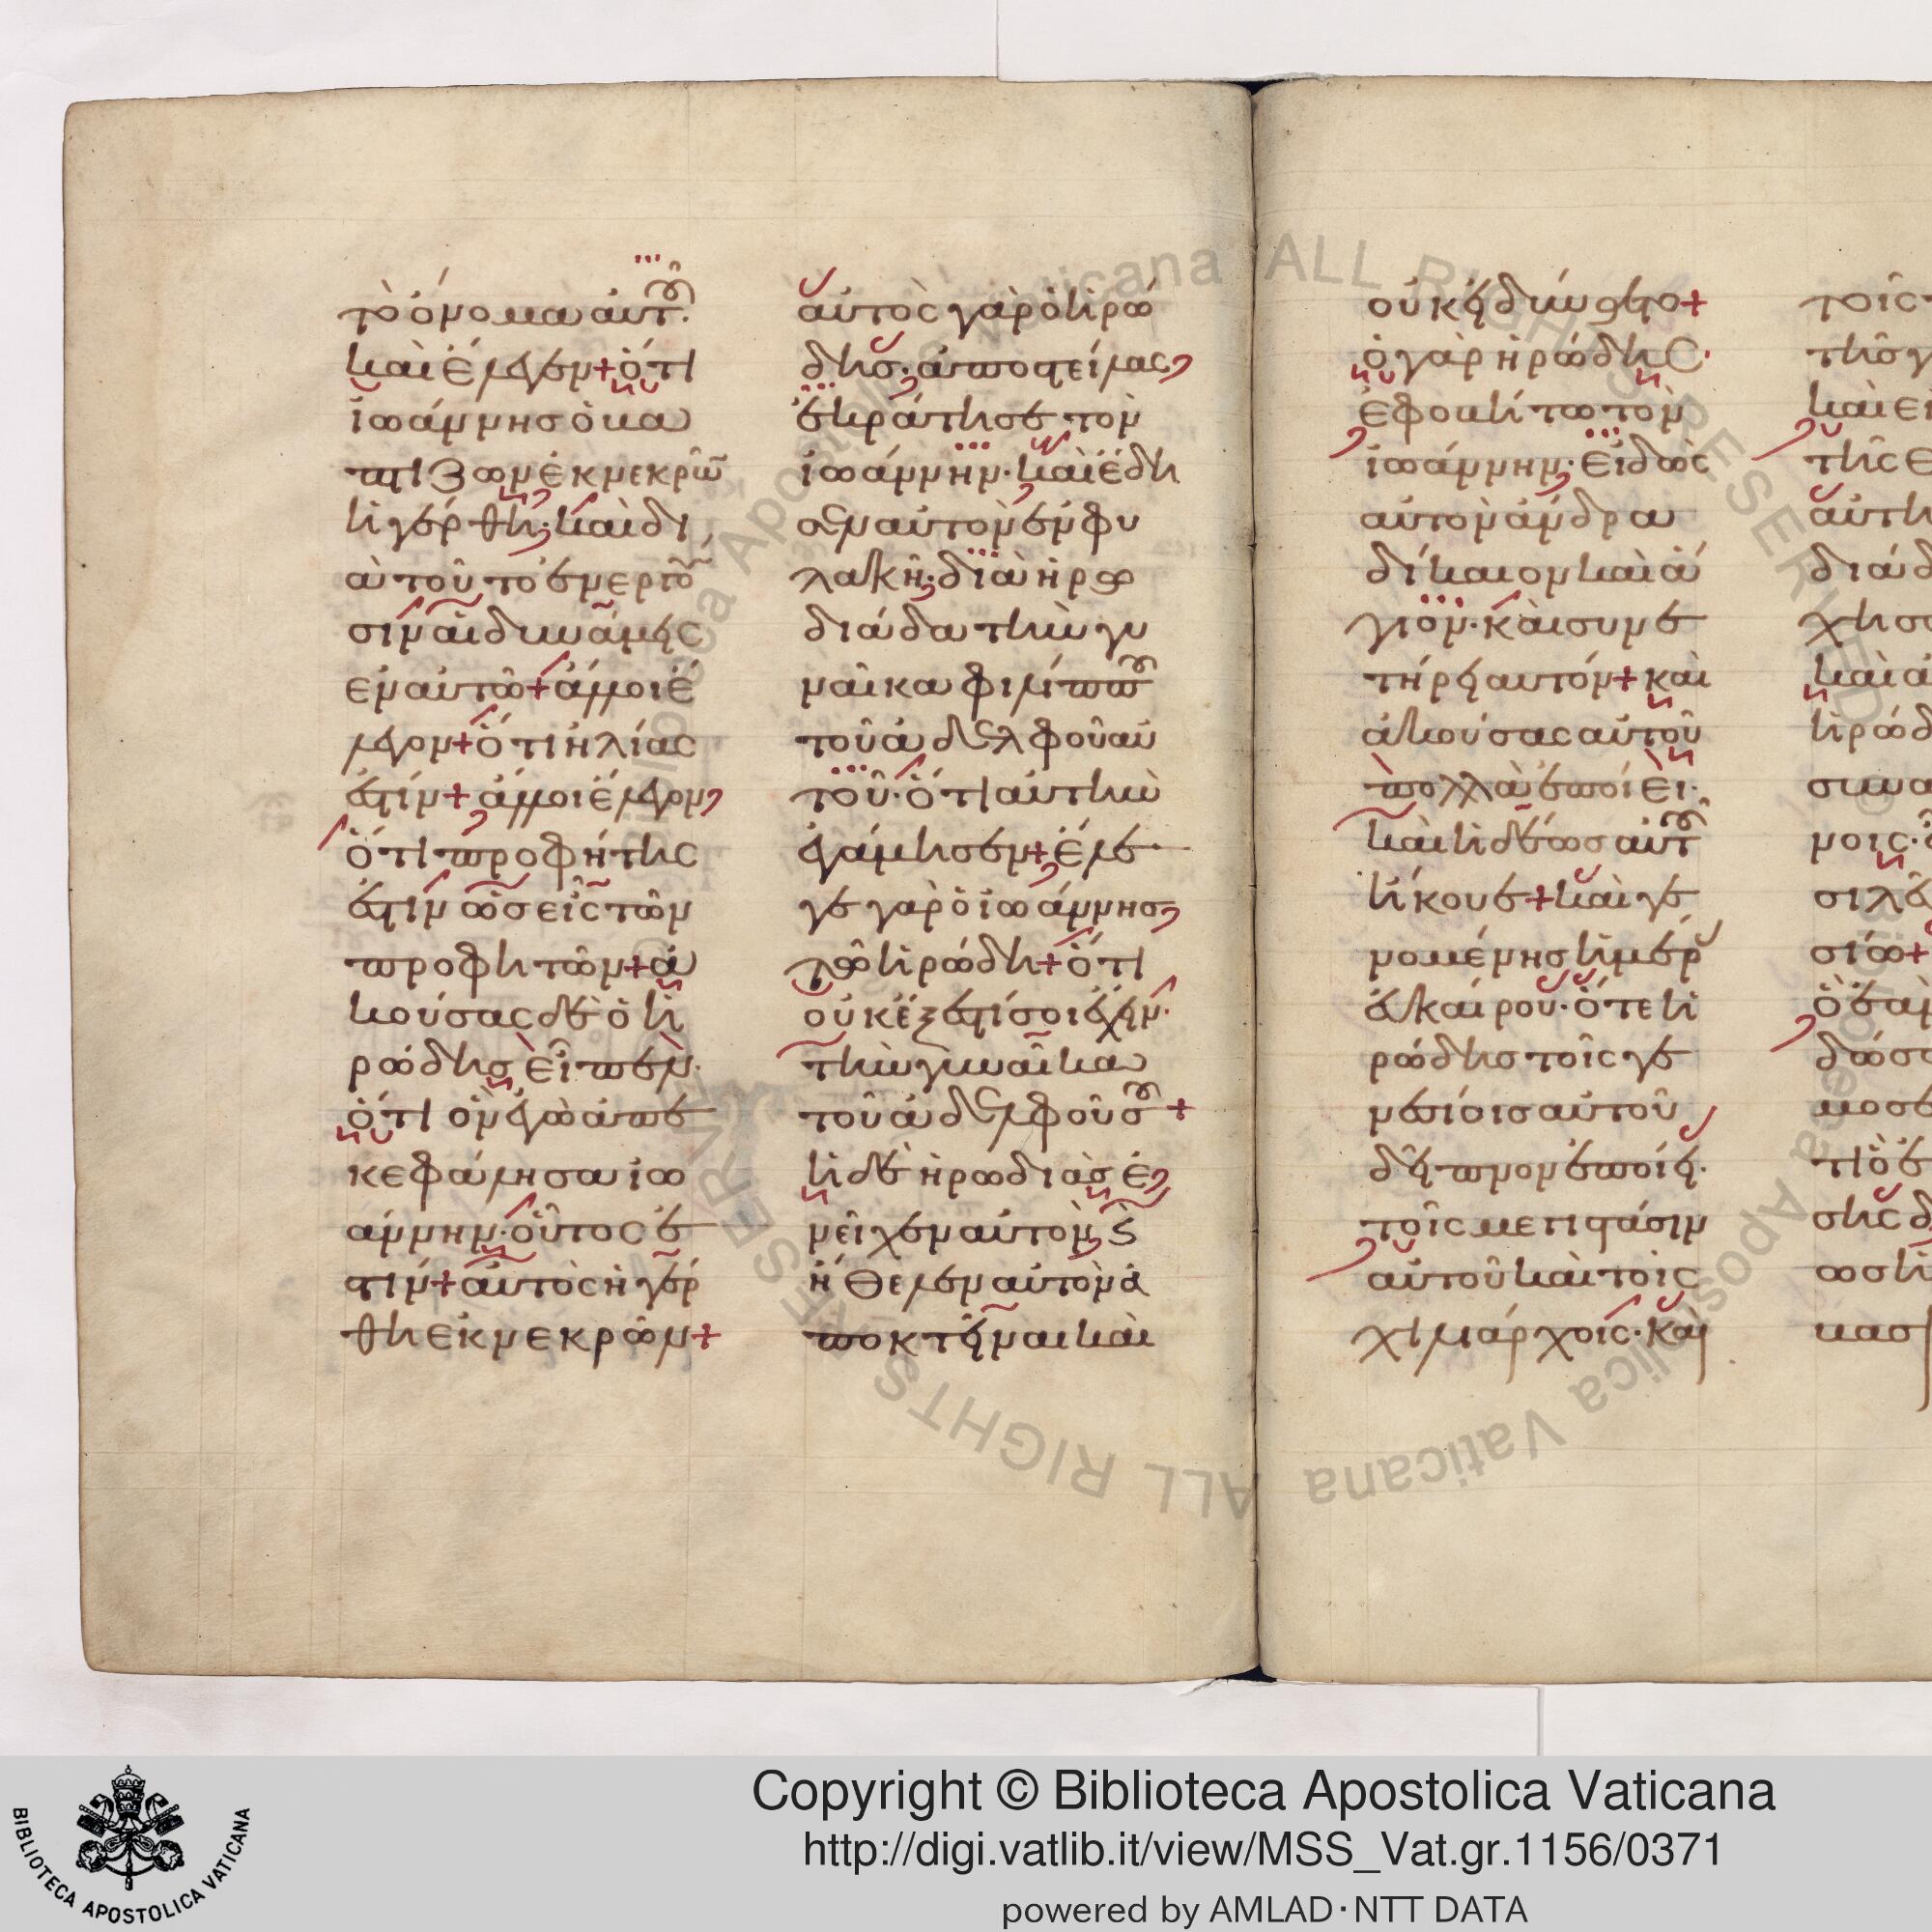 τὸ ὄνομα αὐτ.
καὶ ἔλεγεν + ὅτι
ἰωάννης ὁ βα
πτίζων ἐκ νεκρῶ
ἠγέρθη· καὶ δι
ὰ τοῦτο ἐνεργοῦ
σιν αἱ δυνάμεις
ἐν αὐτῶ + ἄλλοι ἔ
λεγον + ὅτι ἠλίας
ἐστίν + ἄλλοι ἔλεγον
ὅτι προφήτης
ἐστὶν ὡς εἷς τῶν
προφητῶν + ἀ
κούσας δὲ ὁ ἡ
ρώδης εἶπεν·
ὅτι ὃν ἐγὼ ἀπε
κεφάλησα ἰω
άννην· οὗτος ἐ
στίν + αὐτὸς ἠγέρ
θη ἐκ νεκρῶν +
αὐτὸς γὰρ ὁ ἡρώ
δης· ἀποστείλας
ἐκράτησε τὸν
ἰωάννην· καὶ ἔδη
σεν αὐτὸν ἐν φυ
λακῆ· διὰ ἡρω
διάδα τὴν γυ
ναῖκα φιλίππου
τοῦ ἀδελφοῦ αὐ
τοῦ· ὅτι αὐτὴν
ἐγάμησεν + ἔλε
γε γὰρ ὁ ἰωάννης
τῶ ἡρώδη + ὅτι
οὐκ ἔξεστί σοι ἔχειν·
τὴν γυναῖκα
τοῦ ἀδελφοῦ σου +
ἡ δὲ ἡρωδιὰς ἐ
νεῖχεν αὐτὸν ϗ
ἤθελεν αὐτὸν ἀ
ποκτεῖναι καὶ
οὐκ ἠδύνατο +
ὁ γὰρ ἡρώδης·
ἐφοβεῖτο τὸν
ἰωάννην· εἰδὼς
αὐτὸν ἄνδρα
δίκαιον καὶ ἅ
γιον· καὶ συνε
τήρει αὐτόν + καὶ
ἀκούσας αὐτοῦ
πολλὰ ἐποίει·
καὶ ἡδέως αὐτ
ἤκουε + καὶ γε
νομένης ἡμέρ
εὐκαίρου· ὅτε ἡ
ρώδης τοῖς γε
νεσίοις αὐτοῦ
δεῖπνον ἐποίει·
τοῖς μεγιστάσιν
αὐτοῦ καὶ τοῖς
χιλιάρχοις· καὶ
Copyright © Biblioteca Apostolica Vaticana
http://digi.vatlib.it/view/MSS_Vat.gr.1156/0371
powered by AMLAD·NTT DATA
BIBLIOTECA APOSTOLICA VATICANA